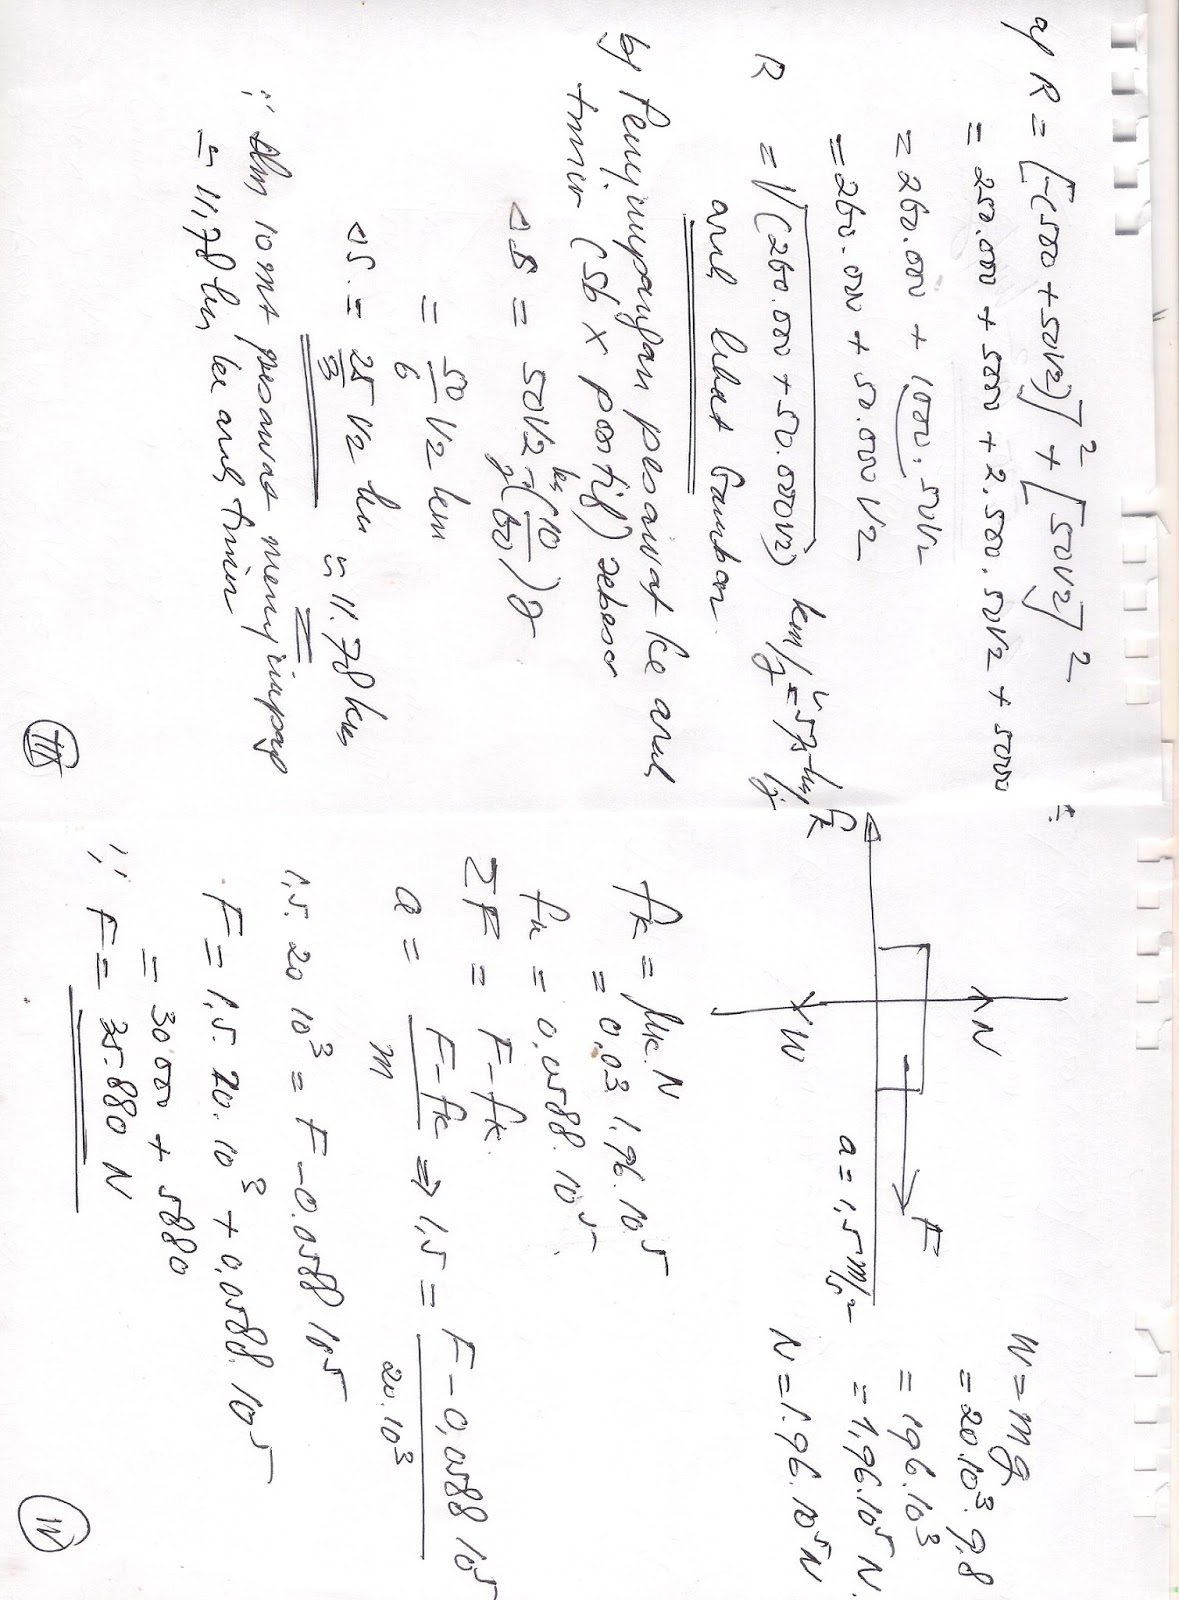 a) R = [-(500 + 50√2)]² + [50√2]²
= 250.000 + 5000 + 2.500.50√2 + 5000
= 260.000 + 1000.50√2
= 260.000 + 50.000√2
R = √(260.000 + 50.000√2) km/j ≈ 575 km/j
arah lihat Gambar.
b) Penyimpangan pesawat ke arah
timur (Sb X positif) sebesar
ΔS = 50√2 km/j (10/60) j
= 50/6 √2 km
ΔS. = 25/3 √2 km ≈ 11.78 km
∴ dlm 10 mt pesawat menyimpang
≈ 11,78 km ke arah timur
III
fk
N
W
F
a = 1,5 m/s²
W = mg
= 20.10³.9,8
= 196.10³
= 1,96.10⁵ N.
N = 1.96.10⁵ N
fk = μk.N
= 0,03 1,96.10⁵
fk = 0,0588.10⁵
ΣF = F - fk
a = F - fk / m ⇒ 1,5 = F - 0,0588 10⁵ / 20.10³
1,5. 20 10³ = F - 0.0588 10⁵
F = 1,5. 20.10³ + 0,0588.10⁵
= 30.000 + 5880
∴ F = 35.880 N
IV